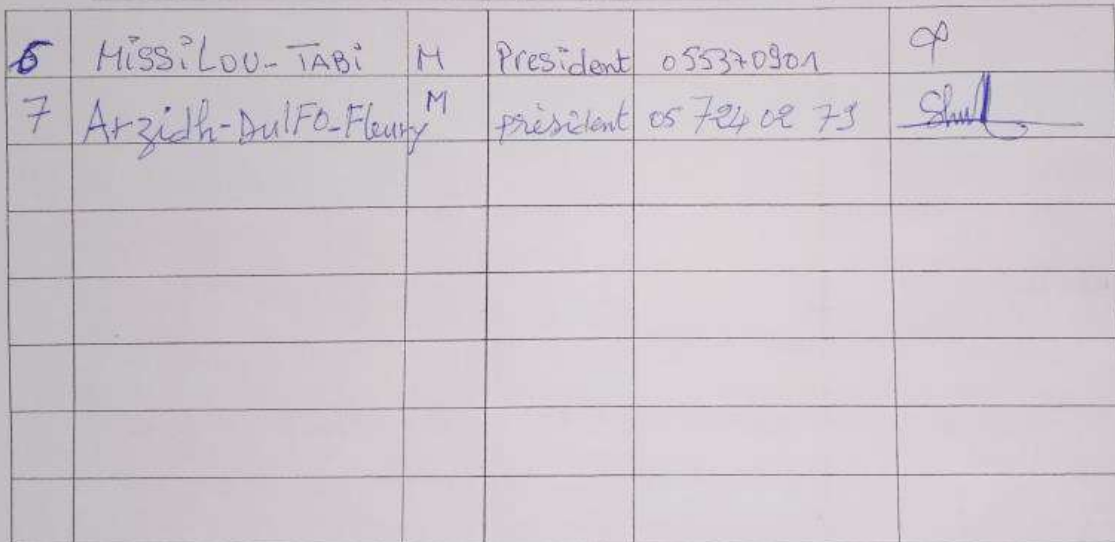 6 MissiLou-TABi M President 055370901
7 Arzidh-DulFO-Fleury M président 05 724 02 79